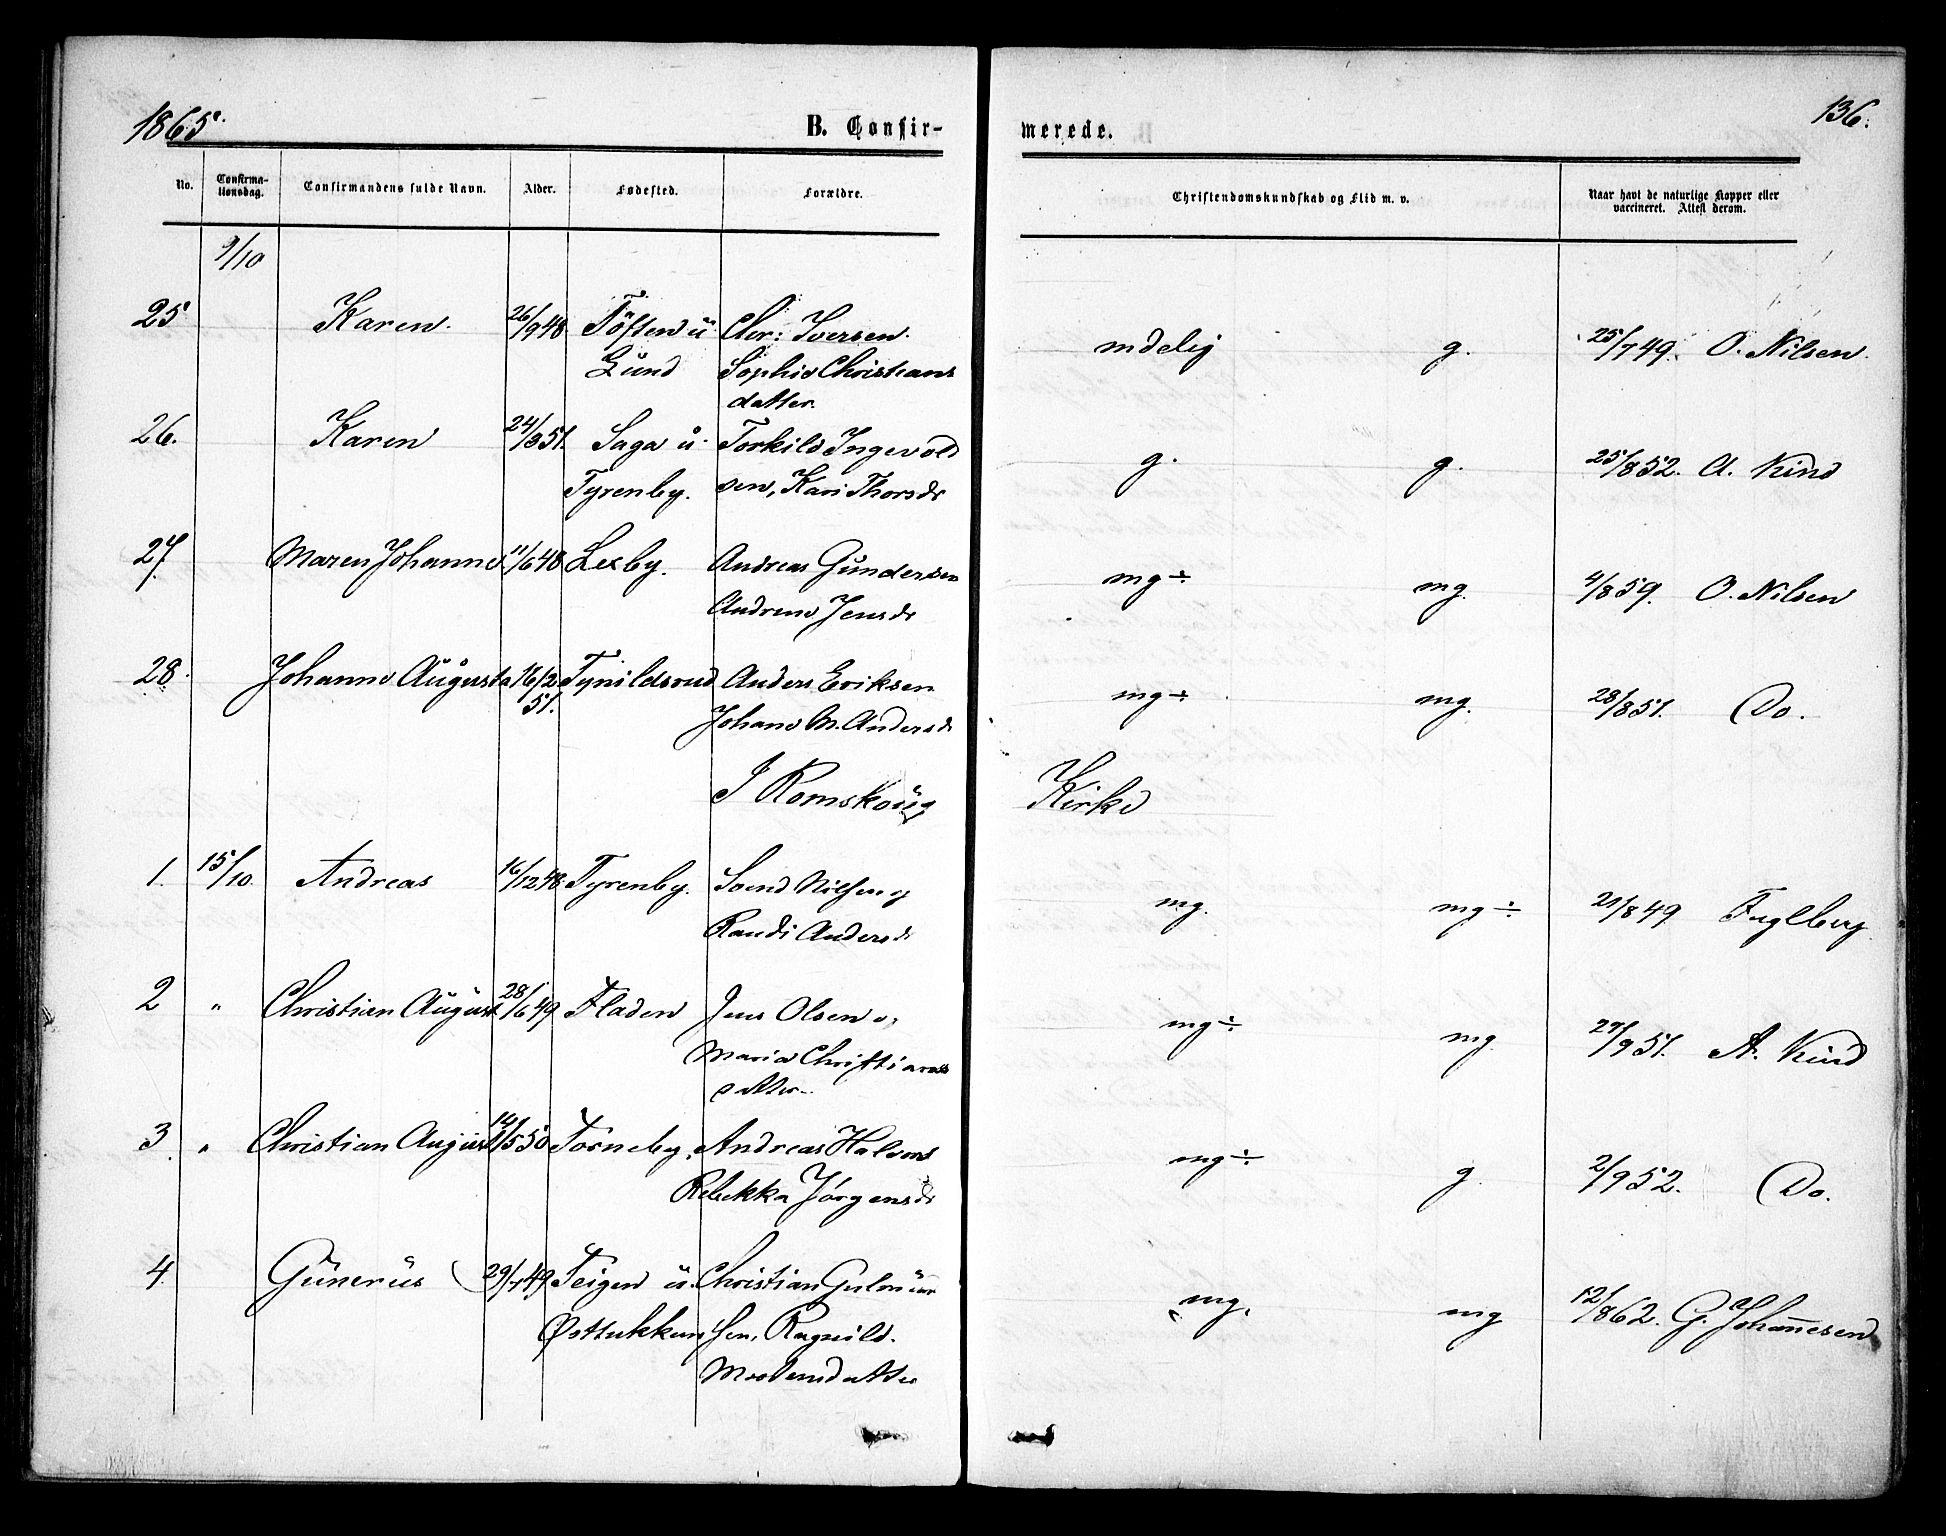 1865.
B. Confir-
merede.
136.
No.
Confirma-
tionsdag.
Confirmandens fulde Navn.
Alder.
Fødested.
Forældre.
Christendomskundskab og Flid m. v.
Naar havt de naturlige Kopper eller
vaccineret. Attest derom.
9/10
25 Karen. 26/9 48 Töften ü Chr: Iversen. mdelig g. 25/7 49. O. Nilsen.
Lünd Sophie Christians
datter.
26. Karen 24/3 51. Saga ü. Torkild Ingevold g. g. 25/8 52. A. Kind
Tyrenby. sen, Kari Thorsdr
27. Maren Johanne 11/6 48 Lexby. Andreas Gundersen mg÷ mg. 4/8 59. O. Nilsen
Andrine Jensdr
28. Johanne Augusta 18/2 Anders Eriksen mg÷ mg. 28/8 51. Do.
51. Johane M. Andersdr
I Romskoug Kirke
1. 15/10. Andreas 16/12 48. Tyrenby. Svend Nilsen og mg. mg÷ 21/8 49 Fuglberg
Randi Andersdr
2 " Christian August 28/6 49 Fladen Jens Olsen o, mg÷ mg 27/9 51. A. Kind
Maria Christians
datter.
3. " Christian August 14/5 50 Torneby. Andreas Halvors mg÷ g. 2/9 52. Do.
Rebekka Jörgensdr
4. Günerüs 29/7 49 Teigen ü. Christian mg. mg 12/8 62. G. Johannesen
sen, Ragnild.
Mortensdatter